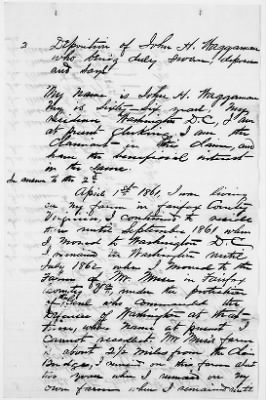 3 Deposition of John H. Waggaman
who being duly sworn, deposes
and says
My name is John H. Waggaman
My is sixty-six years. My
residence Washington D.C. I am
at present clerking. I am the
Claimant in this claim, and
have the beneficial interest
in the same.
In answer to the 2d
April 1st 1861, I was living
on my farm in Fairfax County
Virginia. I continued to reside
there until September 1861 when
I moved to Washington D.C.
I remained in Washington until
July 1862 when I moved to the
farm of Mr. in Fairfax
County Va, under the protection
of the Genl who commanded the
defences of Washington at that
time, whose name at present I
cannot recollect. Mr. farm
is about 2½ miles from the Chain
Bridge, I on this farm about
two years when I moved on my
own farm where I remained until